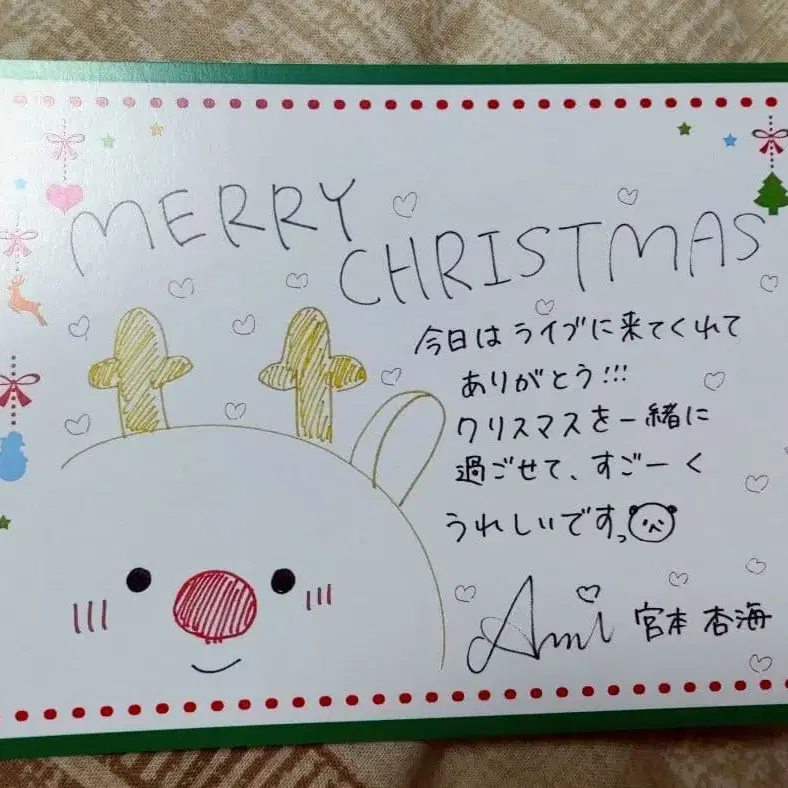 MERRY
CHRISTMAS
今日はライブに来てくれて
ありがとう!!!
クリスマスを一緒に
過ごせて、すごーく
うれしいですっ
Ami 宮本 杏海